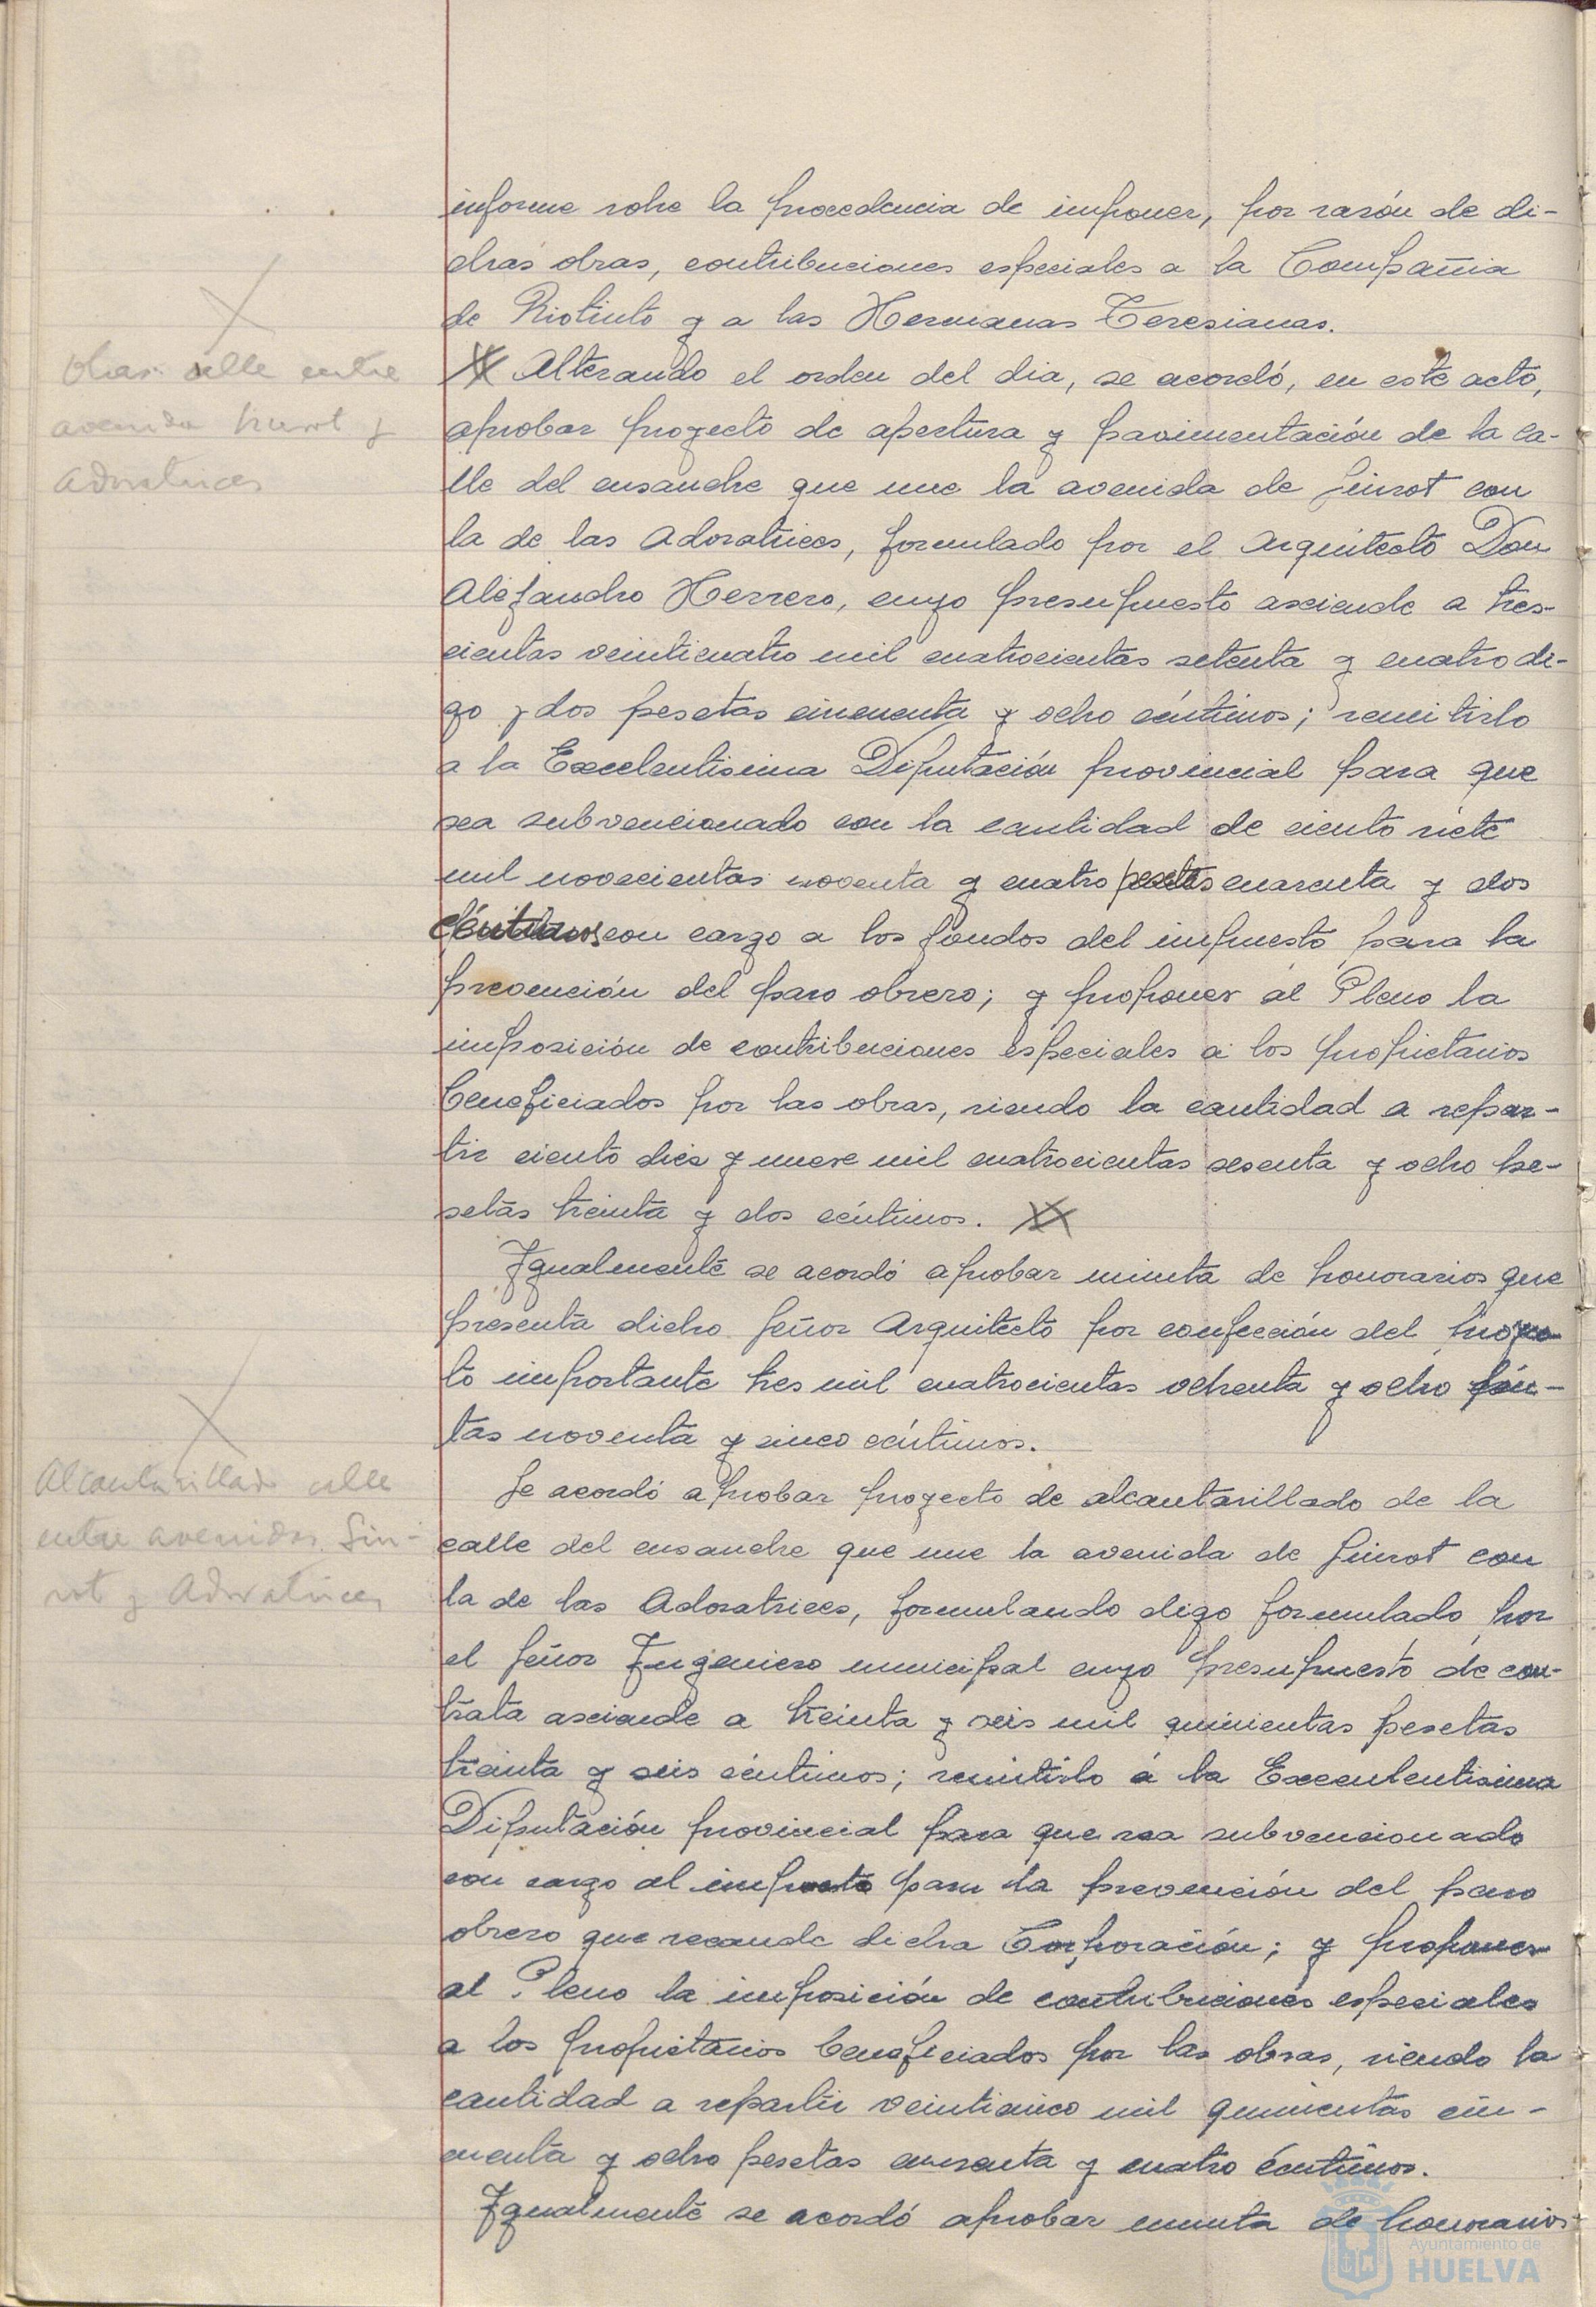 informe sobre la procedencia de imponer, por razón de di-
chas obras, contribuciones especiales a la Compañia
de Riotinto y a las Hermanas Teresianas.
Obras calle entre
avenida Sinrot y
Adoratrices
Alterando el orden del dia, se acordó, en este acto,
aprobar proyecto de apertura y pavimentación de la ca-
lle del ensanche que une la avenida de Sinrot con
la de las Adoratrices, formulado por el Arquitecto Don
Alejandro Herrero, cuyo presupuesto asciende a tres-
cientas veinticuatro mil cuatrocientas setenta y cuatro di-
go y dos pesetas cincuenta y ocho céntimos; remitirlo
a la Excelentisima Diputación provincial para que
sea subvencionado con la cantidad de ciento siete
mil novecientas noventa y cuatro pesetas cuarenta y dos
céntimos con cargo a los fondos del impuesto para la
prevención del paro obrero; y proponer al Pleno la
imposición de contribuciones especiales a los propietarios
beneficiados por las obras, siendo la cantidad a repar-
tir ciento diez y nueve mil cuatrocientas sesenta y ocho pe-
setas treinta y dos céntimos.
Igualmente se acordó aprobar minuta de honorarios que
presenta dicho Señor Arquitecto por confección del
to importante tres mil cuatrocientas ochenta y ocho
tas noventa y cinco céntimos.
Alcantarillado calle
entre avenidas Sin-
rot y Adoratrices
Se acordó aprobar proyecto de alcantarillado de la
calle del ensanche que une la avenida de Sinrot con
la de las Adoratrices, formulando digo formulado por
el Señor Ingeniero municipal cuyo presupuesto de con-
trata asciende a treinta y seis mil quinientas pesetas
treinta y seis céntimos; remitirlo a la Excelentisima
Diputación provincial para que sea subvencionado
con cargo al impuesto para la prevención del paro
obrero que recauda dicha Corporación; y proponer
al Pleno la imposición de contribuciones especiales
a los propietarios beneficiados por las obras, siendo la
cantidad a repartir veinticinco mil quinientas cin-
cuenta y ocho pesetas cuarenta y cuatro céntimos.
Igualmente se acordó aprobar minuta de honorarios
Ayuntamiento de
HUELVA